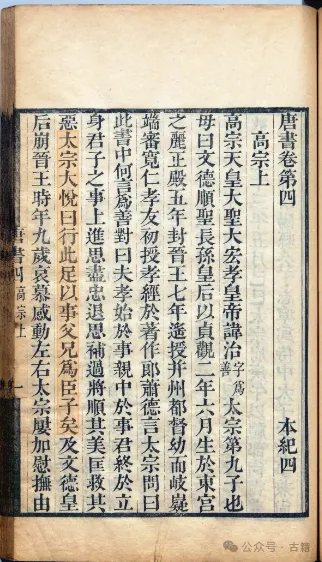 唐書卷第四　本紀四
高宗上
高宗天皇大聖大宏孝皇帝諱治字為善太宗第九子也
母曰文德順聖長孫皇后以貞觀二年六月生於東宮
之麗正殿五年封晉王七年遙授并州都督幼而岐嶷
端審寬仁孝友初授孝經於著作郎蕭德言太宗問曰
此書中何言為善對曰夫孝始於事親中於事君終於立
身君子之事上進思盡忠退思補過將順其美匡救其
惡太宗大悅曰行此足以事父兄為臣子矣及文德皇
后崩晉王時年九歲哀慕感動左右太宗屢加慰撫由
唐書四高宗上　一
公众号·古籍